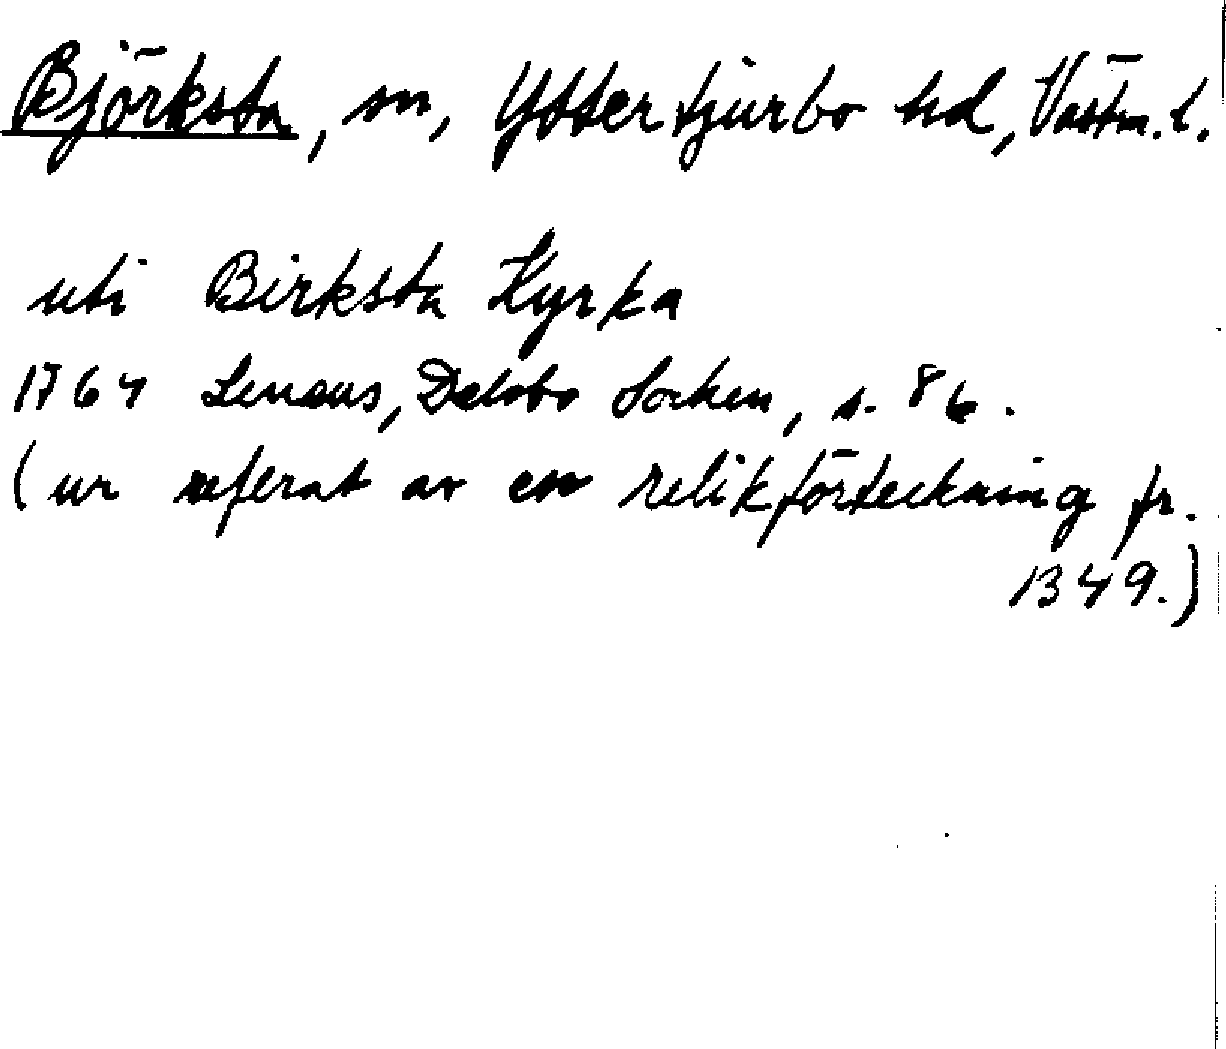 Björksta, sn, Yttertjurbo hd, Västm. l.
uti Birksta Kyrka
1764 Lenæus, Delsbo Socken, s. 86.
(ur referat av en relikförteckning fr.
1349.)